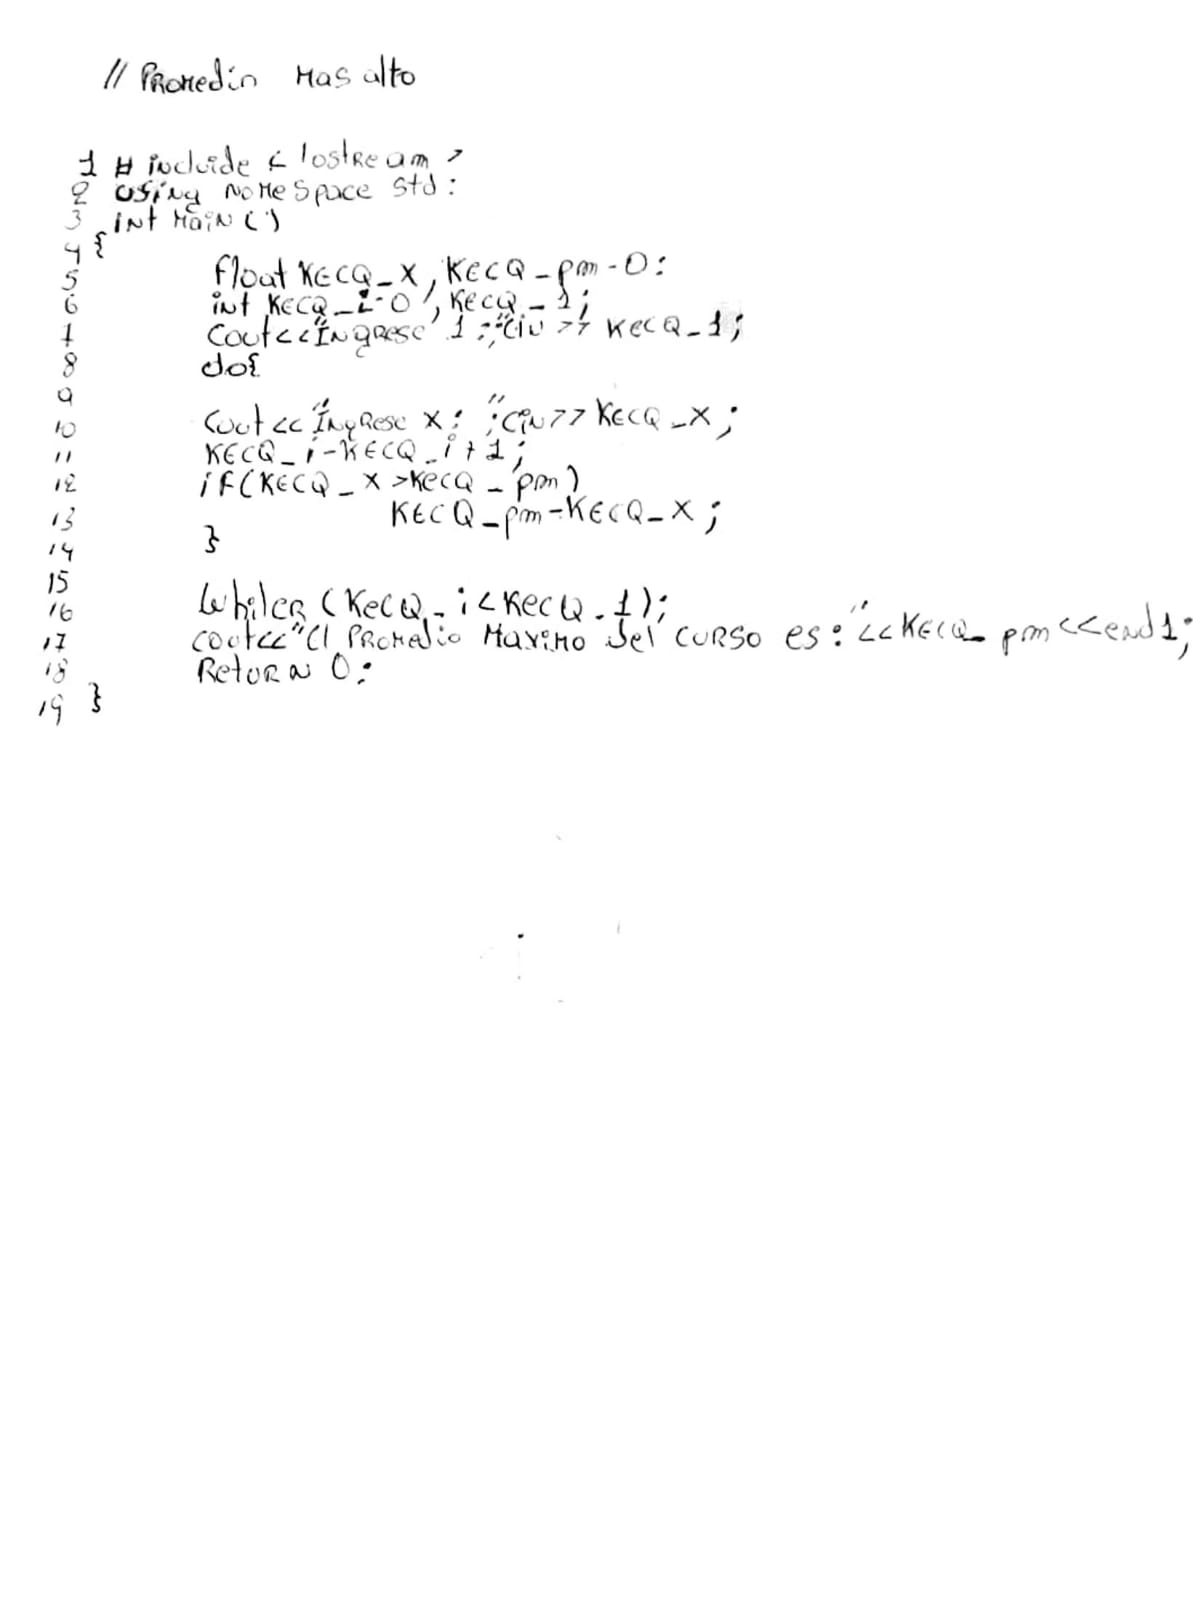 // Promedin Mas alto
1 # include < Iostream >
2 Using NaMe Space std:
3 int Main ()
4 {
5 float KECQ_X, KECQ_pm-0:
6 int KECQ_i-0, KECQ_1;
7 Cout<<"Ingrese 1:";Cin >> KECQ_1;
8 do{
9
10 Cout<<"Ingrese X: ";Cin>>KECQ_X;
11 KECQ_i-KECQ_i+1;
12 if(KECQ_X>KECQ_pm)
13 KECQ_pm-KECQ_X;
14 }
15
16 While(KECQ_i<KECQ_1);
17 Cout<<"El Promedio Maximo del curso es: "<<KECQ_pm<<end1;
18 Return 0:
19 }